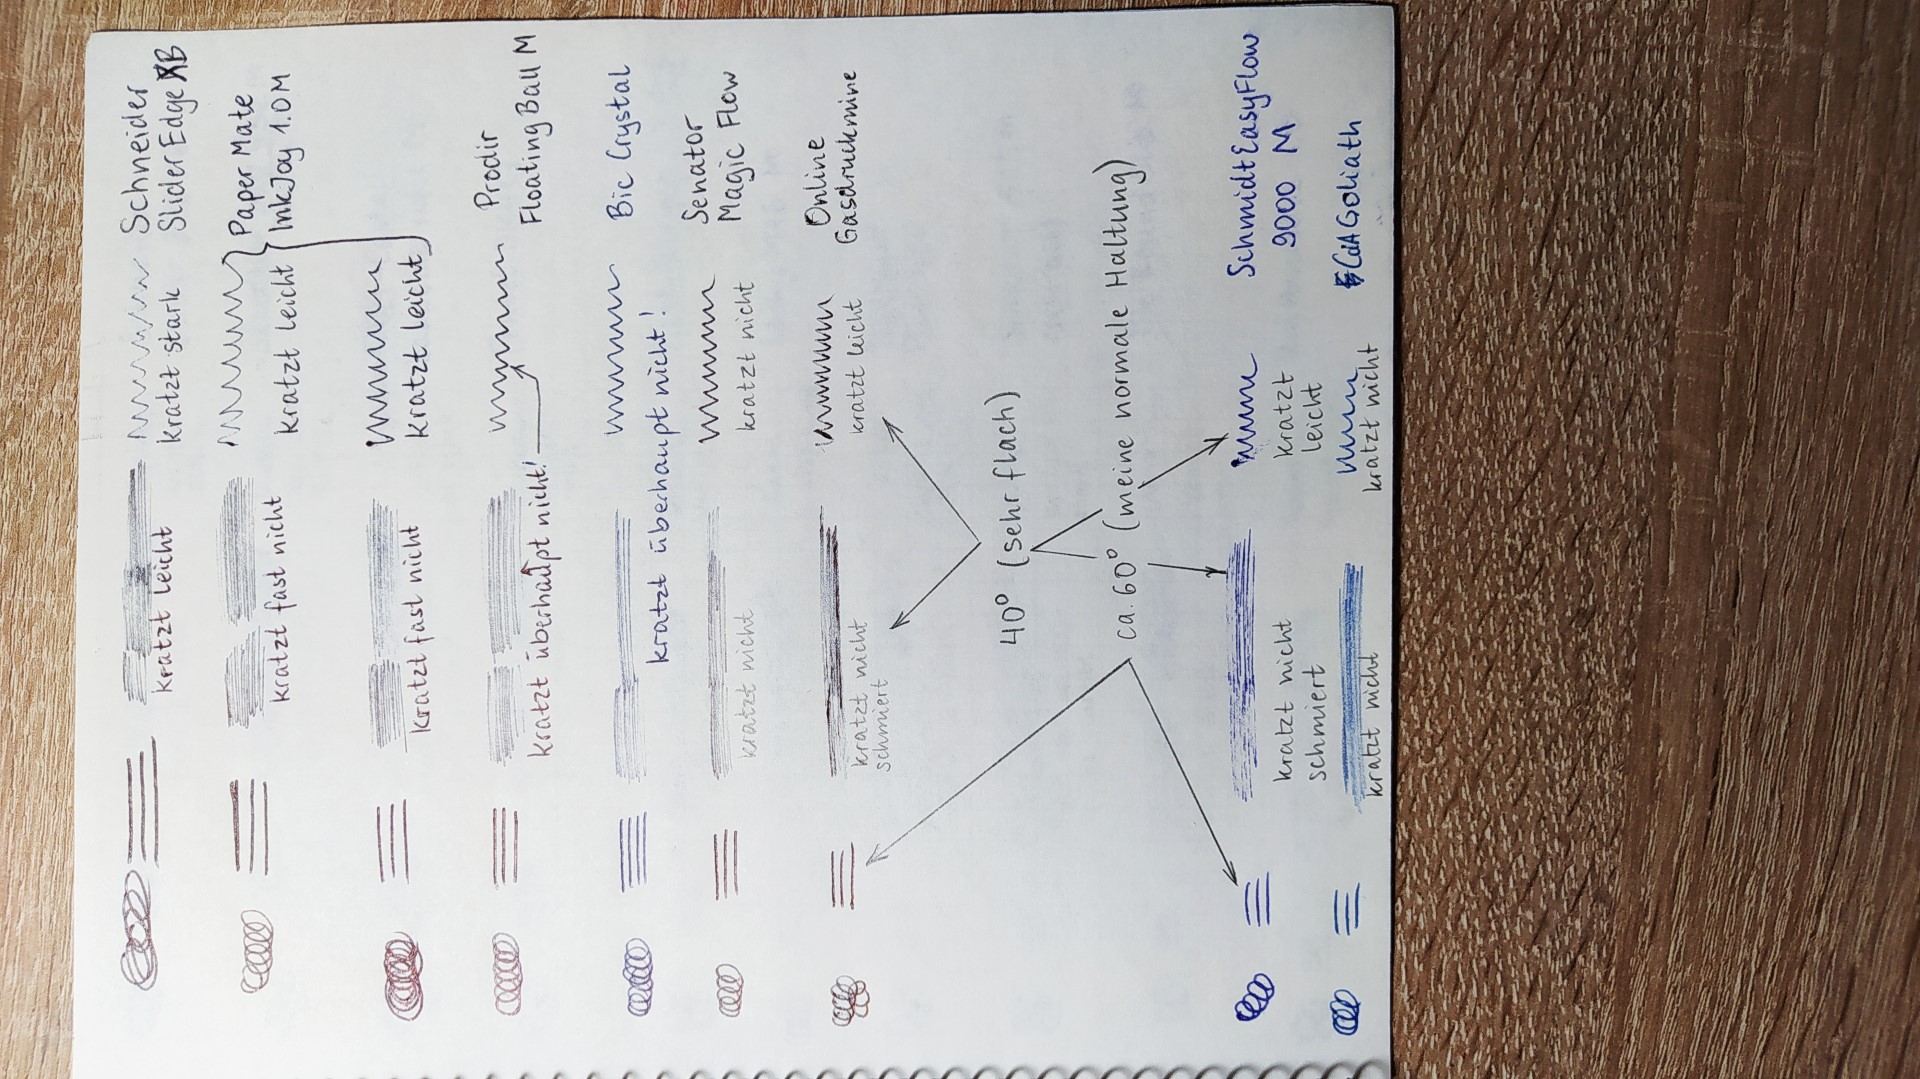 Schneider
kratzt leicht kratzt stark Slider Edge XB
Paper Mate
kratzt fast nicht kratzt leicht InkJoy 1.0 M
kratzt fast nicht kratzt leicht
Prodir
kratzt überhaupt nicht! Floating Ball M
Bic Crystal
kratzt überhaupt nicht!
Senator
kratzt nicht kratzt nicht Magic Flow
Online
kratzt nicht kratzt leicht Gasdruckmine
schmiert
40° (sehr flach)
ca. 60° (meine normale Haltung)
Schmidt EasyFlow
kratzt nicht kratzt 9000 M
schmiert leicht
CdA Goliath
kratzt nicht kratzt nicht